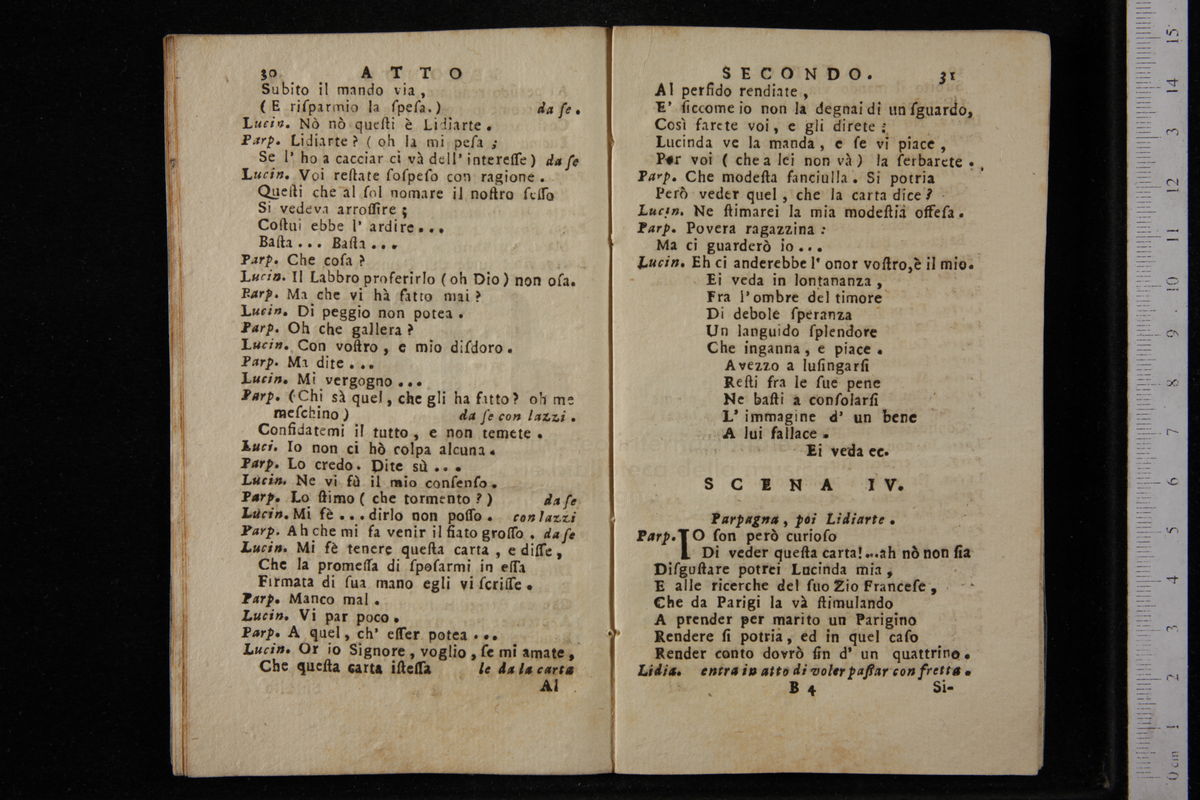 30 ATTO
Subito il mando via,
(E riſparmio la ſpeſa.) da ſe.
Lucin. Nò nò queſti è Lidiarte.
Parp. Lidiarte? (oh la mi peſa ;
Se l' ho a cacciar ci và dell' intereſſe) da ſe
Lucin. Voi reſtate ſoſpeſo con ragione.
Queſti che al ſol nomare il noſtro ſeſſo
Si vedeva arroſſire;
Coſtui ebbe l' ardire...
Baſta... Baſta...
Parp. Che coſa?
Lucin. Il Labbro proferirlo (oh Dio) non oſa.
Parp. Ma che vi hà fatto mai?
Lucin. Di peggio non potea.
Parp. Oh che gallera?
Lucin. Con voſtro, e mio diſdoro.
Parp. Ma dite...
Lucin. Mi vergogno...
Parp. (Chi sà quel, che gli ha fatto? oh me
meſchino) da ſe con lazzi.
Confidatemi il tutto, e non temete.
Luci. Io non ci hò colpa alcuna.
Parp. Lo credo. Dite sù...
Lucin. Ne vi fù il mio conſenſo.
Parp. Lo ſtimo (che tormento?) da ſe
Lucin. Mi fè... dirlo non poſſo. con lazzi
Parp. Ah che mi fa venir il fiato groſſo. da ſe
Lucin. Mi fè tenere queſta carta, e diſſe,
Che la promeſſa di ſpoſarmi in eſſa
Firmata di ſua mano egli vi ſcriſſe.
Parp. Manco mal.
Lucin. Vi par poco.
Parp. A quel, ch' eſſer potea...
Lucin. Or io Signore, voglio, ſe mi amate,
Che queſta carta iſteſſa le da la carta
Al
SECONDO. 31
Al perfido rendiate,
E' ſiccome io non la degnai di un ſguardo,
Così farete voi, e gli direte:
Lucinda ve la manda, e ſe vi piace,
Per voi (che a lei non và) la ſerbarete.
Parp. Che modeſta fanciulla. Si potria
Però veder quel, che la carta dice?
Lucin. Ne ſtimarei la mia modeſtia offeſa.
Parp. Povera ragazzina:
Ma ci guarderò io...
Lucin. Eh ci anderebbe l' onor voſtro, è il mio.
Ei veda in lontananza,
Fra l'ombre del timore
Di debole ſperanza
Un languido ſplendore
Che inganna, e piace.
Avezzo a luſingarſi
Reſti fra le ſue pene
Ne baſti a conſolarſi
L' immagine d' un bene
A lui fallace.
Ei veda ec.
SCENA IV.
Parpagna, poi Lidiarte.
Parp. IO ſon però curioſo
Di veder queſta carta!...ah nò non ſia
Diſguſtare potrei Lucinda mia,
E alle ricerche del ſuo Zio Franceſe,
Che da Parigi la và ſtimulando
A prender per marito un Parigino
Rendere ſi potria, ed in quel caſo
Render conto dovrò ſin d' un quattrino.
Lidia. entra in atto di voler paſſar con fretta.
B 4 Si-
0 cm 1 2 3 4 5 6 7 8 9 10 11 12 13 14 15